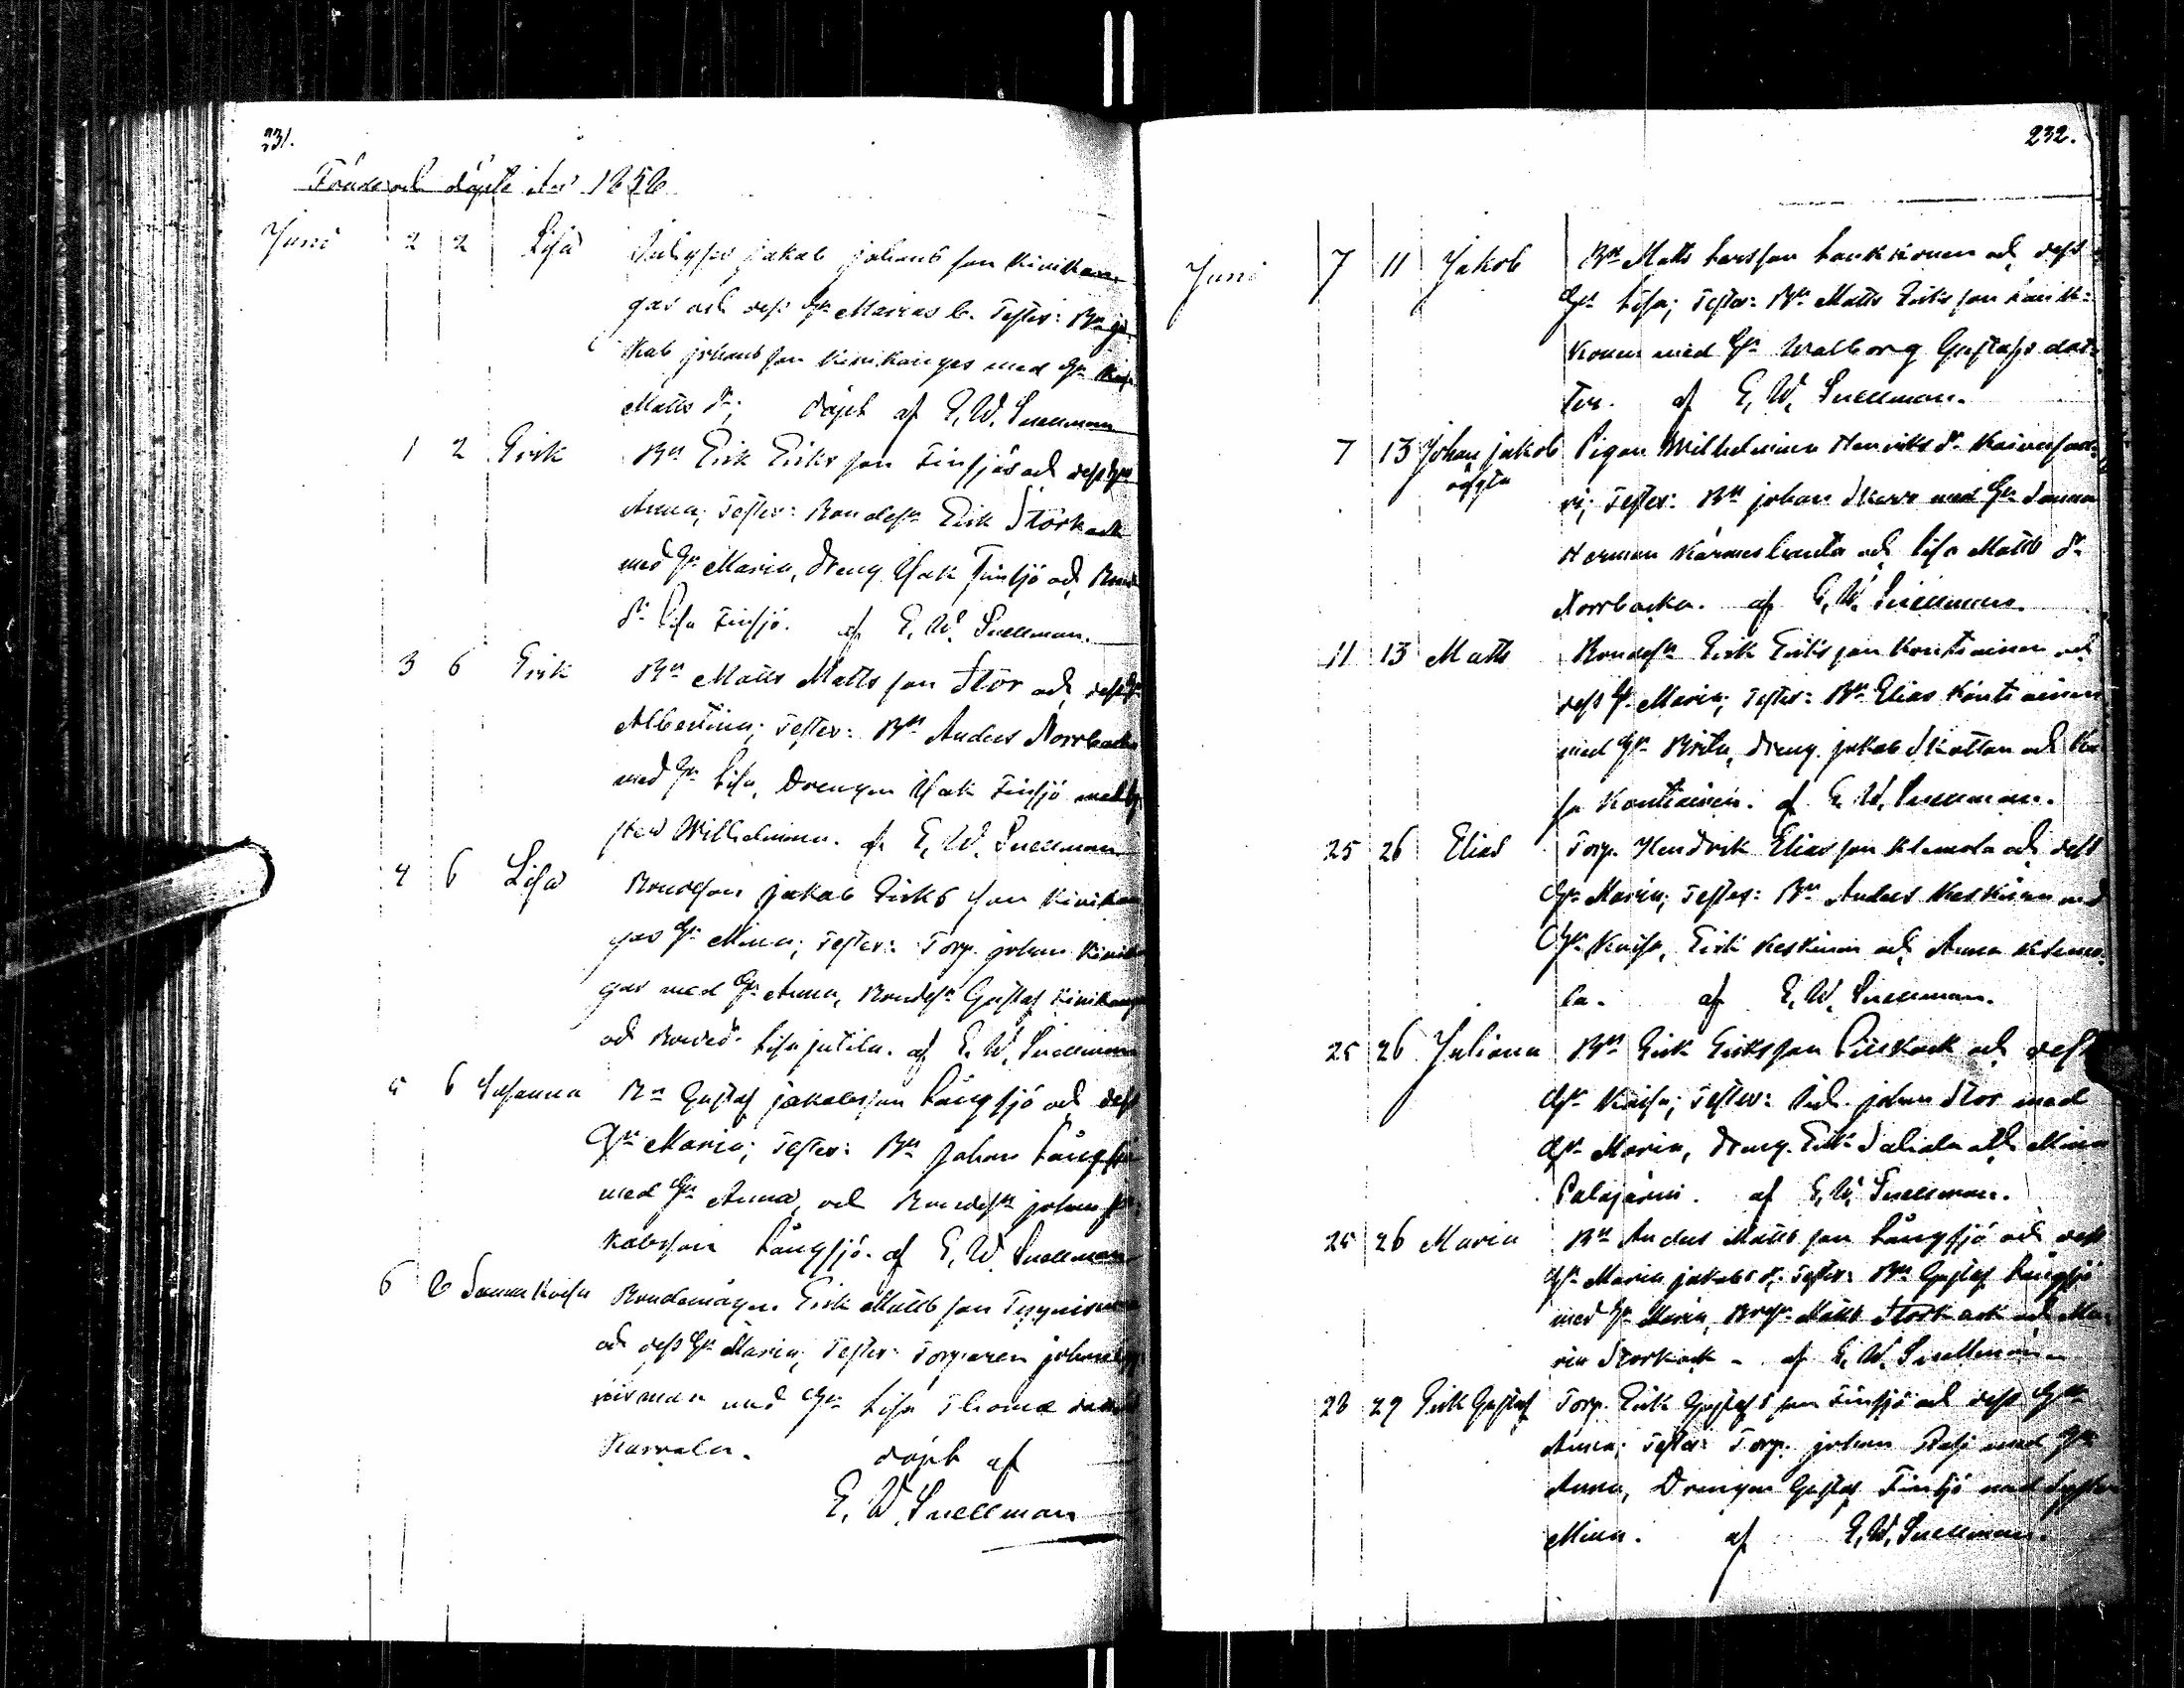 231.
Födde och döpte år 1858
Juni 2 2 Lisa Jakob Johans son Kivikan
gas och dess Hu Maria Test: Bn Ja
kob Johans son Kivikangas med Hu Kajsa
Matts dr. döpt af E. W. Snellman
1 2 Erik Bn Erik Eriks son Finsjö och dess Hu
Anna; Test: Bondesn Erik Storkack
med Hu Maria, Dreng Isak Finsjö och Bonde
dr Lisa Finsjö. af E. W. Snellman.
3 6 Erik Bn Matts Matts son Stor och dess Hu
Albertina; Test: Bn Anders Norrbacka
med Hu Lisa, Drengen Isak Finsjö med sy
ster Wilhelmina. af E. W. Snellman
4 6 Lisa Bondeson Jakob Eriks son Kivikan
gas Hu Mina; Test: Torp. Johan Kivikan
gas med Hu Anna, Bondesn Gustaf Kivikangas
och Bondedr Lisa Jutila. af E. W. Snellman
5 6 Susanna Bn Gustaf Jakobsson Långsjö och dess
Hu Maria; Test: Bn Johan Långsjö
med Hu Anna, och Bondesn Johan Ja
kobsson Långsjö. af E. W. Snellman
6 8 Sanna Kaisa Bondemågen Erik Matts son
och dess Hu Maria; Test: Torparen Johan
med Hu Lisa Thomæ
döpt af
E. W. Snellman
232.
Juni 7 11 Jakob Bn Matts Larsson Laukkonen och dess
Hu Lisa; Test: Bn Matts Eriks son Lauk
konen med Hu Walborg Gustafs dot
ter. af E. W. Snellman.
7 13 Johan Jakob Pigan Wilhelmina Henriks dr
oägta Test: Bn Johan med Hu Sanna
Herman och Lisa Matts dr
Norrbacka. af E. W. Snellman.
11 13 Matts Bondesn Erik Eriks son Kontiainen och
dess Hu Maria; Test: Bn Elias Kontiainen
med Hu Brita, Dreng. Jakob Skottan och Kai
sa Kontiainen. af E. W. Snellman.
25 26 Elias Torp. Hendrik Elias son Klemola och dess
Hu Maria; Test: Bn Anders Keskinen med
Hu Kaisa, Erik Keskinen och Anna Klemo
la. af E. W. Snellman.
25 26 Juliana Bn Erik Eriksson Lillkack och dess
Hu Kaisa; Test: Johan Stor med
Hu Maria, Dreng. Erik och Mina
Palojärvi. af E. W. Snellman.
25 26 Maria Bn Anders Matts son Långsjö och dess
Hu Maria Jakobs dr; Test: Bn Gustaf Långsjö
med Hu Maria, Matts Storkack och Ma
ria Storkack. af E. W. Snellman.
28 29 Erik Gustaf Torp. Erik Gustafs son Finsjö och dess Hu
Anna; Test: Torp. Johan med Hu
Anna, Drengen Gustaf Finsjö med syster
Mina. af E. W. Snellman.